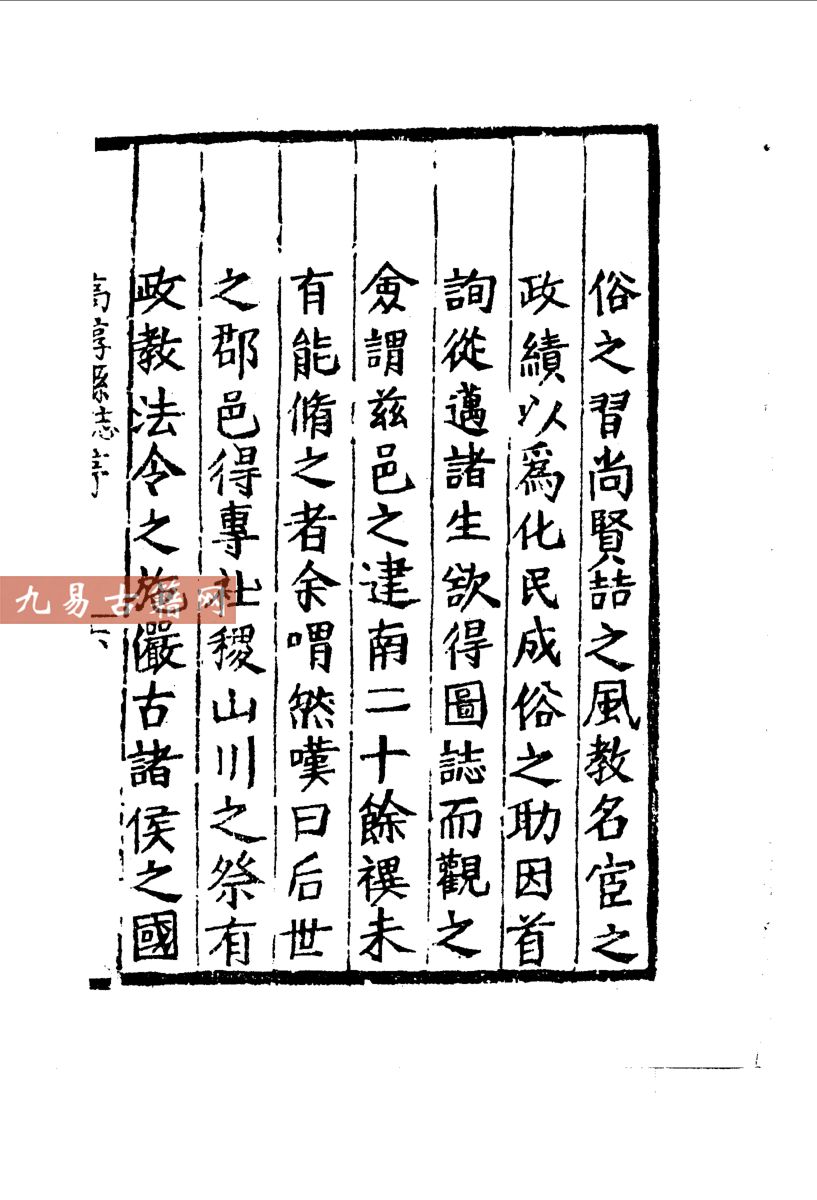 俗之習尚賢喆之風教名宦之
政績以爲化民成俗之助因首
詢從邁諸生欲得圖誌而觀之
僉謂茲邑之建南二十餘禩未
有能脩之者余喟然嘆曰后世
之郡邑得專社稷山川之祭有
政教法令之施儼古諸侯之國
高淳縣志序
六
九易古籍网